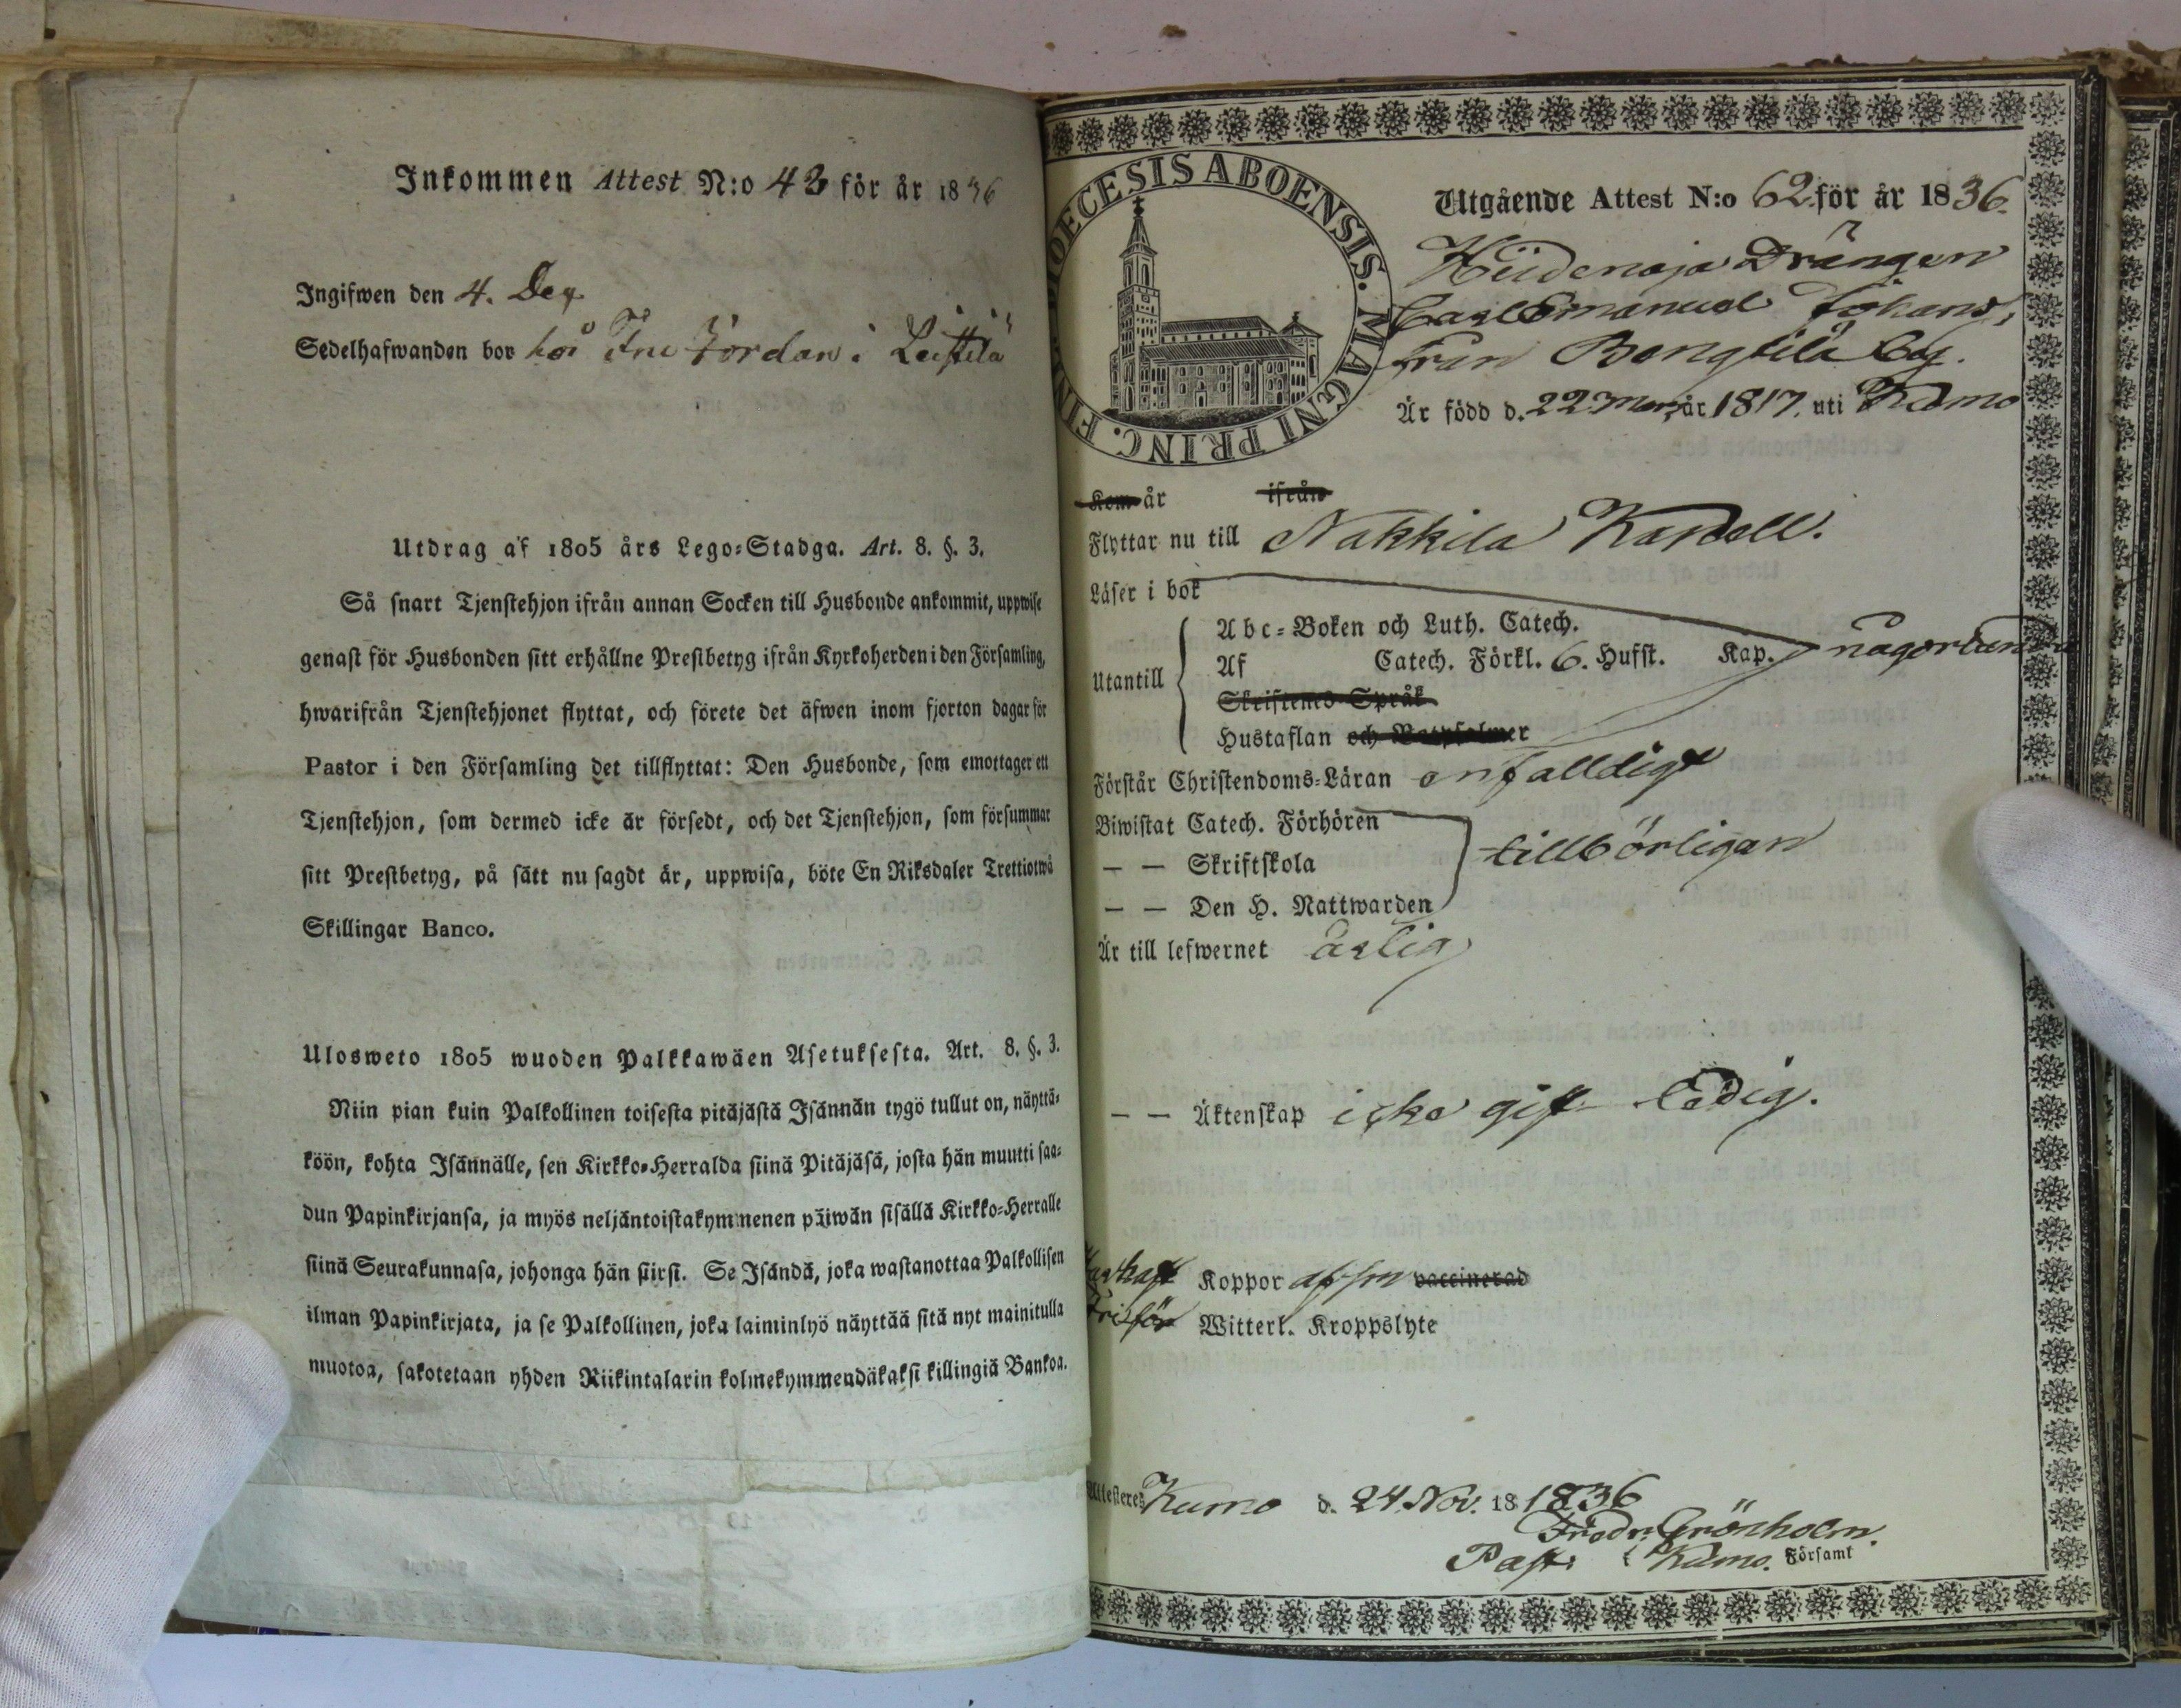 Inkommen Attest N:o 43 för år 1836
Ingifwen den 4. Dec.
Sedelhafwanden bor hos Fru Jordan i Leistilä
Utdrag af 1805 års Lego=Stadga. Art. 8. §. 3.
Så snart Tjenstehjon ifrån annan Socken till Husbonde ankommit, uppwise
genast för Husbonden sitt erhållne Prestbetyg ifrån Kyrkoherden i den Församling,
hwarifrån Tjenstehjonet flyttat, och förete det äfwen inom fjorton dagar för
Pastor i den Församling det tillflyttat: Den Husbonde, som emottager ett
Tjenstehjon, som dermed icke är försedt, och det Tjenstehjon, som försummar
sitt Prestbetyg, på sätt nu sagdt är, uppwisa, böte En Riksdaler Trettiotwå
Skillingar Banco.
Ulosweto 1805 wuoden Palkkawäen Asetuksesta. Art. 8. §. 3.
Niin pian kuin Palkollinen toisesta pitäjästä Isännän tygö tullut on, näyttä=
köön, kohta Isännälle, sen Kirkko=Herralda siinä Pitäjäsä, josta hän muutti saa=
dun Papinkirjansa, ja myös neljäntoistakymmenen päiwän sisällä Kirkko=Herralle
siinä Seurakunnasa, johonga hän siirsi. Se Isändä, joka wastanottaa Palkollisen
ilman Papinkirjata, ja se Palkollinen, joka laiminlyö näyttää sitä nyt mainitulla
muotoa, sakotetaan yhden Riikintalarin kolmekymmendäkaksi killingiä Bankoa.
DIOECESIS ABOENSIS. MAGNI PRINC. FINL.
Utgående Attest N:o 62 för år 1836.
Hiidenoja Drängen
Carl Emanuel Johans,
från Bengtilä By.
Är född d. 22 Mars år 1817. uti Kumo
Kom år ifrån
Flyttar nu till Nakkila Kapell.
Läser i bok
Utantill
Abc=Boken och Luth. Catech.
Af Catech. Förkl. 6. Hufst. Kap. någorlunda
Skriftenes Språk
Hustaflan och Botpsalmer
Förstår Christendoms=Läran enfalldigt
Biwistat Catech. Förhören
— — Skriftskola tillbörligan
— — Den H. Nattwarden
Är till lefwernet ärlig
— — Äktenskap icke gift ledig.
haft Koppor vaccinerad
Fri för Witterl. Kroppslyte
Attesteres Kumo d. 24 Nov. 18 1836
Fredr. Grönholm
Past. i Kumo. Församl.